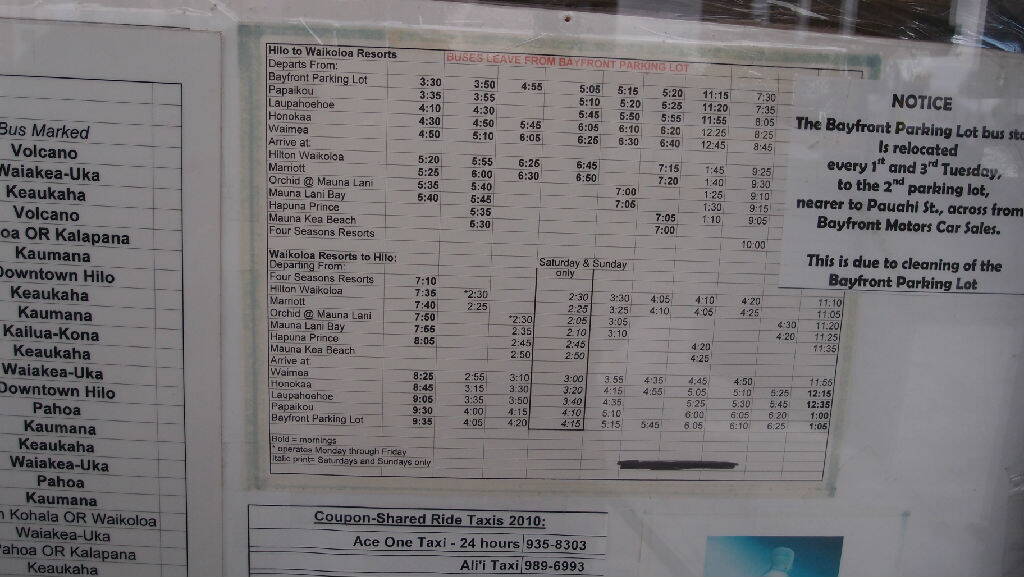 Bus Marked
Volcano
Waiakea-Uka
Keaukaha
Volcano
oa OR Kalapana
Kaumana
Downtown Hilo
Keaukaha
Kaumana
Kailua-Kona
Keaukaha
Waiakea-Uka
Downtown Hilo
Pahoa
Kaumana
Keaukaha
Waiakea-Uka
Pahoa
Kaumana
h Kohala OR Waikoloa
Waiakea-Uka
Pahoa OR Kalapana
Keaukaha
Hilo to Waikoloa Resorts
BUSES LEAVE FROM BAYFRONT PARKING LOT
Departs From:
Bayfront Parking Lot 3:30 3:50 4:55 5:05 5:15 5:20 11:15 7:30
Papaikou 3:35 3:55 5:10 5:20 5:25 11:20 7:35
Laupahoehoe 4:10 4:30 5:45 5:50 5:55 11:55 8:05
Honokaa 4:30 4:50 5:45 6:05 6:10 6:20 12:25 8:25
Waimea 4:50 5:10 6:05 6:25 6:30 6:40 12:45 8:45
Arrive at:
Hilton Waikoloa 5:20 5:55 6:25 6:45 7:15 1:45 9:25
Marriott 5:25 6:00 6:30 6:50 7:20 1:40 9:30
Orchid @ Mauna Lani 5:35 5:40 7:00 1:25 9:10
Mauna Lani Bay 5:40 5:45 7:05 1:30 9:15
Hapuna Prince 5:35 7:05 1:10 9:05
Mauna Kea Beach 5:30 7:00
Four Seasons Resorts 10:00
Waikoloa Resorts to Hilo:
Saturday & Sunday only
Departing From:
Four Seasons Resorts 7:10
Hilton Waikoloa 7:35 *2:30 2:30 3:30 4:05 4:10 4:20 11:10
Marriott 7:40 2:25 2:25 3:25 4:10 4:05 4:25 11:05
Orchid @ Mauna Lani 7:50 *2:30 2:05 3:05 4:30 11:20
Mauna Lani Bay 7:55 2:35 2:10 3:10 4:20 11:25
Hapuna Prince 8:05 2:45 2:45 4:20 11:35
Mauna Kea Beach 2:50 2:50 4:25
Arrive at:
Waimea 8:25 2:55 3:10 3:00 3:55 4:35 4:45 4:50 11:55
Honokaa 8:45 3:15 3:30 3:20 4:15 4:55 5:05 5:10 5:25 12:15
Laupahoehoe 9:05 3:35 3:50 3:40 4:35 5:25 5:30 5:45 12:35
Papaikou 9:30 4:00 4:15 4:10 5:10 6:00 6:05 6:20 1:00
Bayfront Parking Lot 9:35 4:05 4:20 4:15 5:15 5:45 6:05 6:10 6:25 1:05
Bold = mornings
* operates Monday through Friday
Italic print= Saturdays and Sundays only
NOTICE
The Bayfront Parking Lot bus sto
Is relocated
every 1st and 3rd Tuesday,
to the 2nd parking lot,
nearer to Pauahi St., across from
Bayfront Motors Car Sales.
This is due to cleaning of the
Bayfront Parking Lot
Coupon-Shared Ride Taxis 2010:
Ace One Taxi - 24 hours 935-8303
Ali'i Taxi 989-6993